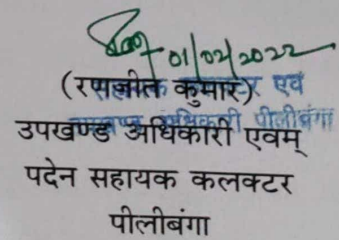 01/02/2022
(रणजीत कुमार)
एवं
उपखण्ड अधिकारी एवम्
पीलीबंगा
पदेन सहायक कलक्टर
पीलीबंगा